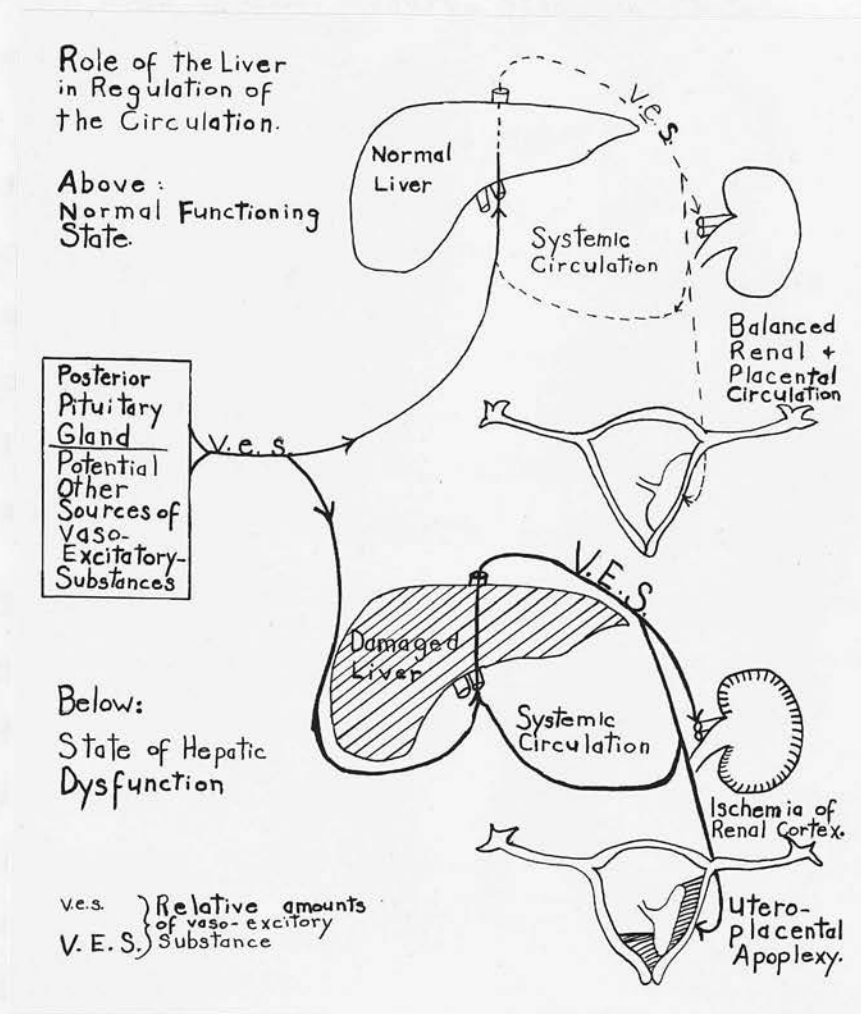 Role of the Liver
in Regulation of
the Circulation.
Above:
Normal Functioning
State.
Normal
Liver
v.e.s.
Systemic
Circulation
Balanced
Renal +
Placental
Circulation
Posterior
Pituitary
Gland
Potential
Other
Sources of
Vaso-
Excitatory-
Substances
v.e.s.
V.E.S.
Damaged
Liver
Systemic
Circulation
Below:
State of Hepatic
Dysfunction
Ischemia of
Renal Cortex.
Utero-
placental
Apoplexy.
v.e.s. } Relative amounts
of vaso-excitory
V. E. S. } Substance